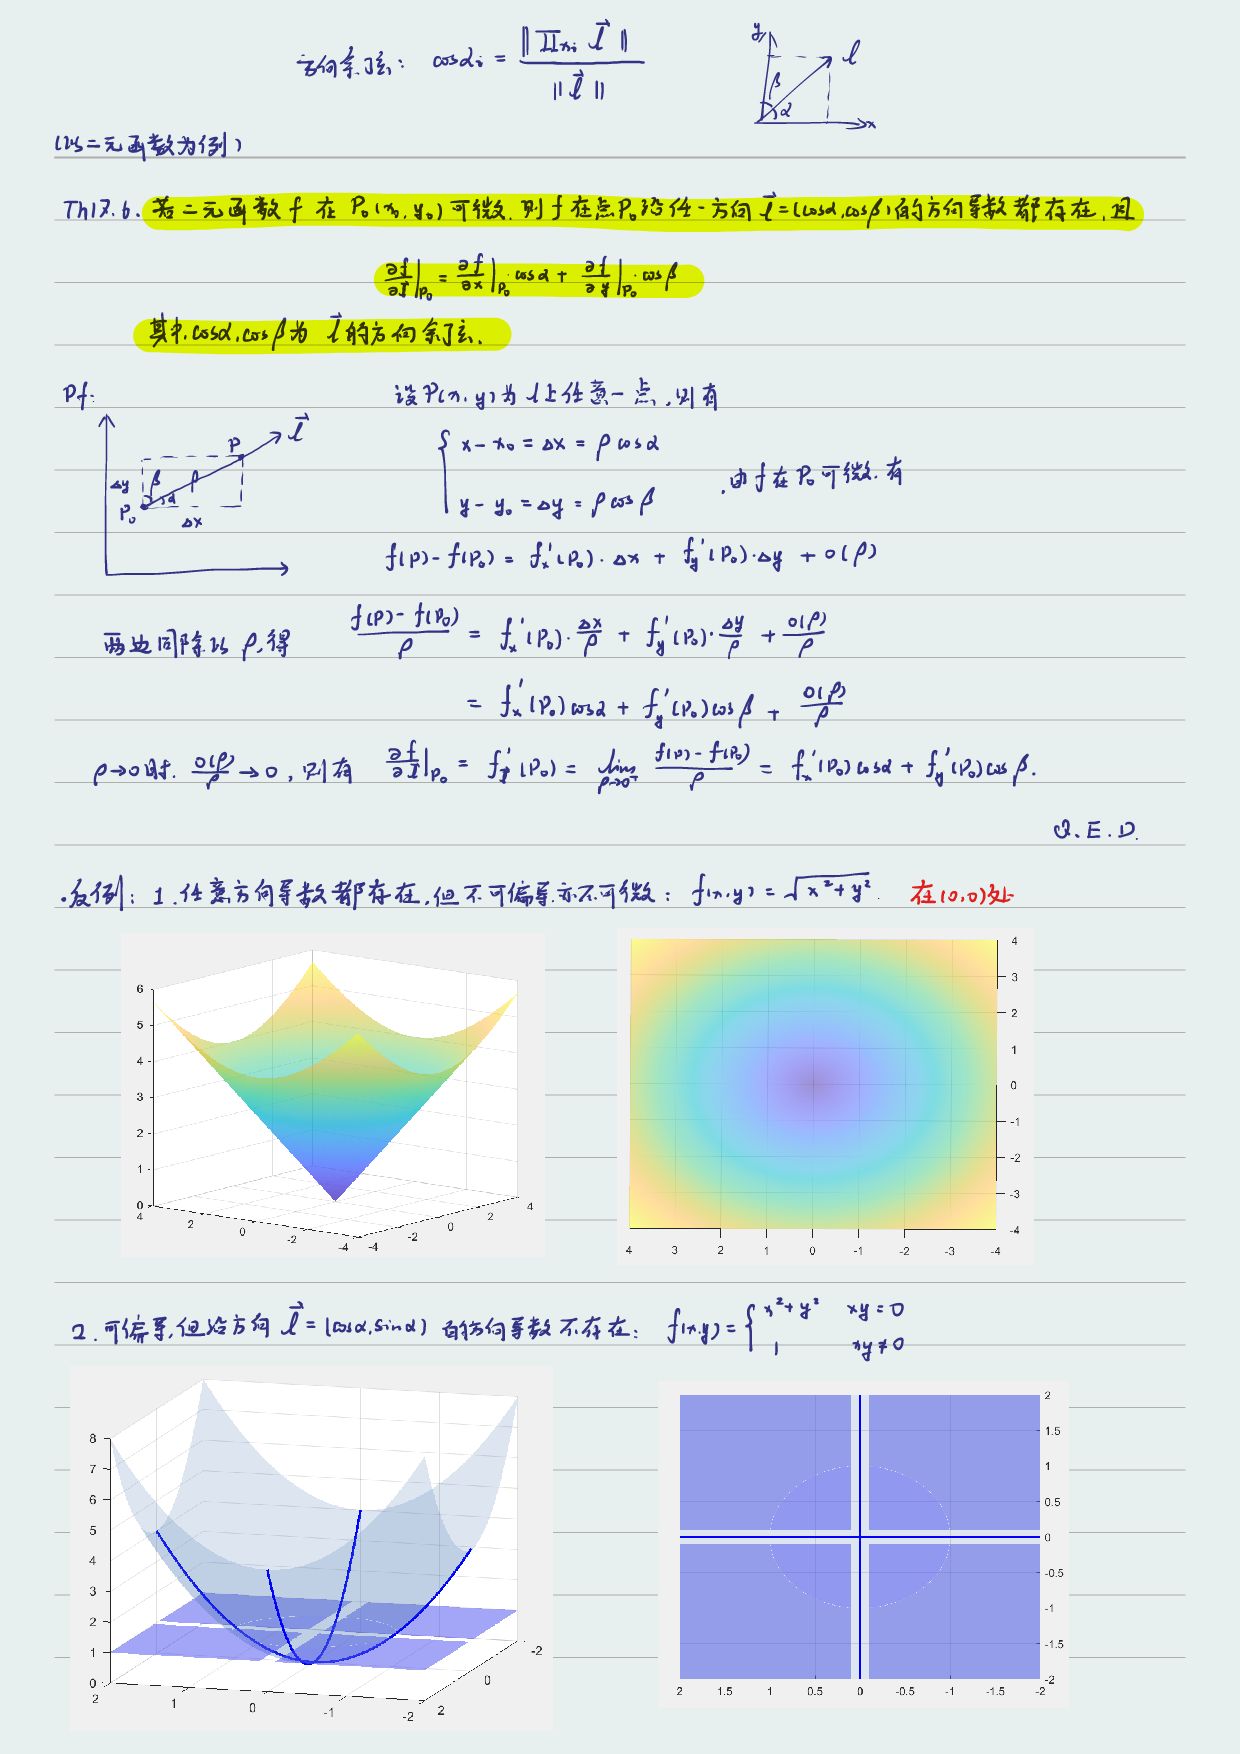 方向余弦: cosαᵢ = ‖Πₓᵢ l⃗‖ / ‖l⃗‖
y l β α x
(以二元函数为例)
Th17.6. 若二元函数 f 在 P₀(x₀,y₀)可微.则 f 在点P₀沿任一方向 l⃗=(cosα,cosβ)的方向导数都存在,且
∂f/∂l⃗|P₀ = ∂f/∂x|P₀·cosα + ∂f/∂y|P₀·cosβ
其中,cosα,cosβ为 l⃗的方向余弦.
Pf:
设P(x,y)为 l上任意一点,则有
l⃗ P Δy β ρ α P₀ Δx
{ x-x₀ = Δx = ρcosα
y-y₀ = Δy = ρcosβ
,由f在P₀可微.有
f(P)-f(P₀) = fₓ'(P₀)·Δx + f_y'(P₀)·Δy + o(ρ)
两边同除以 ρ,得 (f(P)-f(P₀))/ρ = fₓ'(P₀)·Δx/ρ + f_y'(P₀)·Δy/ρ + o(ρ)/ρ
= fₓ'(P₀)cosα + f_y'(P₀)cosβ + o(ρ)/ρ
ρ→0时. o(ρ)/ρ→0, 则有 ∂f/∂l⃗|P₀ = f_l⃗'(P₀) = lim ρ→0⁺ (f(P)-f(P₀))/ρ = fₓ'(P₀)cosα + f_y'(P₀)cosβ.
Q.E.D.
·反例: 1.任意方向导数都存在,但不可偏导亦不可微: f(x,y)=√(x²+y²). 在(0,0)处
6
5
4
3
2
1
0
4 2 0 -2 -4
-4 -2 0 2 4
4
3
2
1
0
-1
-2
-3
-4
4 3 2 1 0 -1 -2 -3 -4
2.可偏导,但沿方向 l⃗=(cosα,sinα) 的方向导数不存在: f(x,y)={ x²+y² xy=0
1 xy≠0
8
7
6
5
4
3
2
1
0
2 1 0 -1 -2
2 0 -2
2
1.5
1
0.5
0
-0.5
-1
-1.5
-2
2 1.5 1 0.5 0 -0.5 -1 -1.5 -2